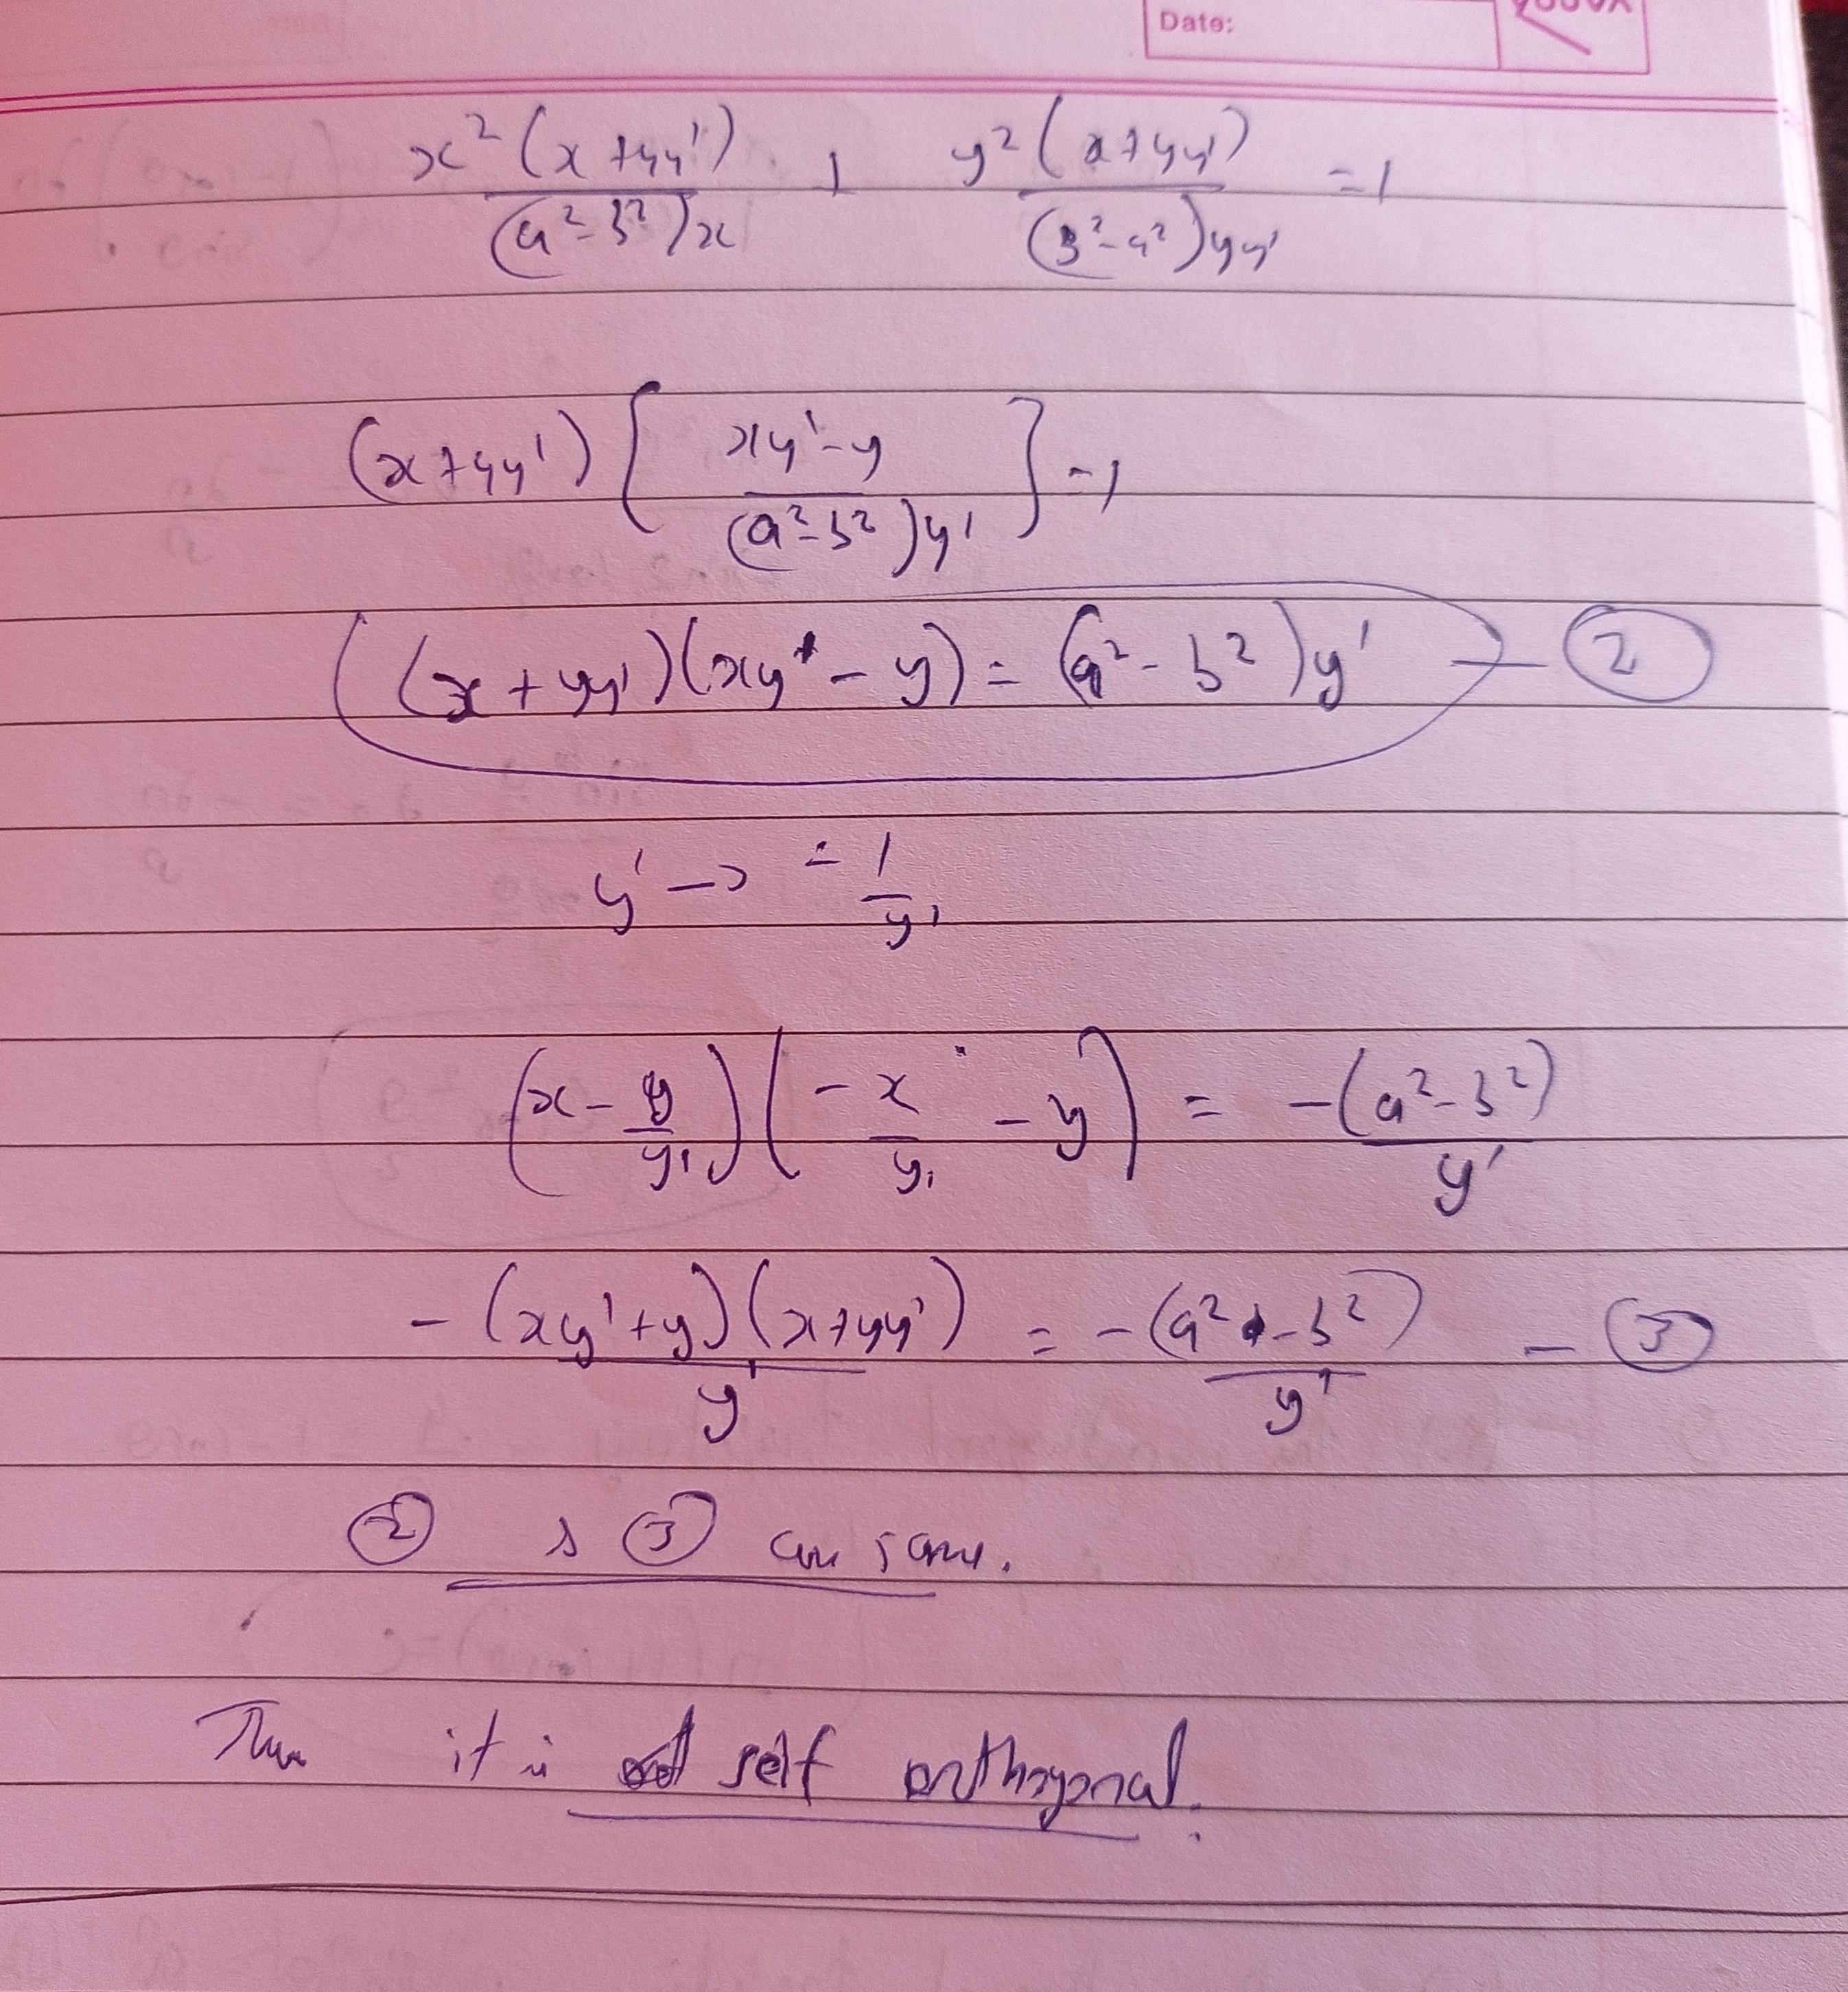 Date:
x²(x+yy')/(a²-b²)x + y²(x+yy')/(b²-a²)yy' = 1
(x+yy') [ xy'-y / (a²-b²)y' ] = 1
(x+yy')(xy'-y) = (a²-b²)y' — ②
y' -> -1/y'
(x - y/y')(-x/y' - y) = -(a²-b²)/y'
-(xy'+y)(x+yy')/y' = -(a²-b²)/y' — ③
② & ③ are same.
Thus it is self orthogonal.